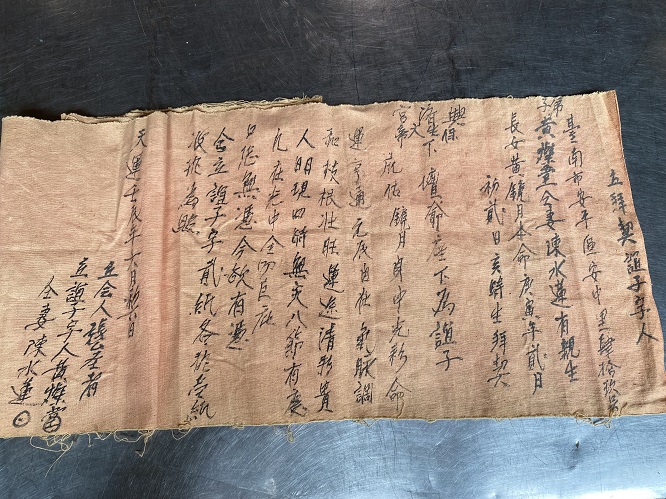 立拜契誼子字人
臺南市安平區安中里肆拾玖號
弟子黃燦雷仝妻陳水蓮有親生
長女黃鏡月本命庚寅年貳月
初貳日亥時生拜契
座下壇爺座下為誼子
庇佑鏡月身中光彩命
運亨通元辰自在氣脈調
和枝根壯旺運途清彩貴
人明現四時無災八節有慶
凡在光中全叨巨庇
口恐無憑今欲有憑
合立誼子字貳紙各於壹紙
收執為照
天運壬辰年六月初六日
立合人
立誼子字人黃燦雷
仝妻陳水蓮